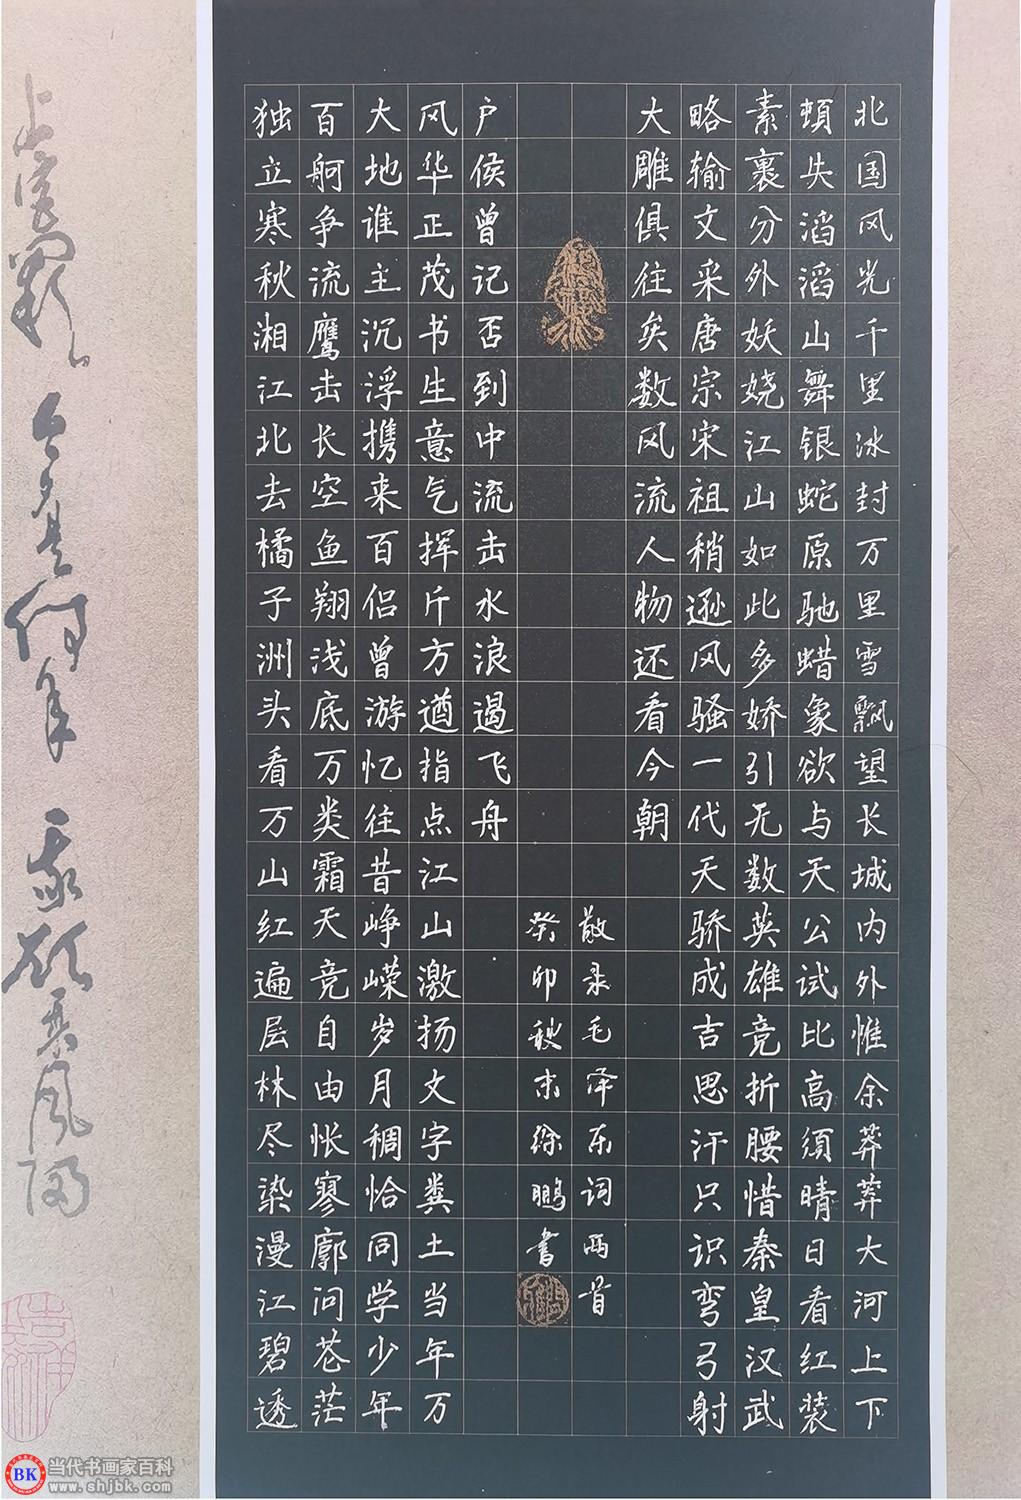 北国风光千里冰封万里雪飘望长城内外惟余莽莽大河上下
顿失滔滔山舞银蛇原驰蜡象欲与天公试比高须晴日看红装
素裹分外妖娆江山如此多娇引无数英雄竞折腰惜秦皇汉武
略输文采唐宗宋祖稍逊风骚一代天骄成吉思汗只识弯弓射
大雕俱往矣数风流人物还看今朝
散录毛泽东词两首
癸卯秋末徐鹏书
户侯曾记否到中流击水浪遏飞舟
风华正茂书生意气挥斥方遒指点江山激扬文字粪土当年万
大地谁主沉浮携来百侣曾游忆往昔峥嵘岁月稠恰同学少年
百舸争流鹰击长空鱼翔浅底万类霜天竞自由怅寥廓问苍茫
独立寒秋湘江北去橘子洲头看万山红遍层林尽染漫江碧透
BK 当代书画家百科
www.shjbk.com